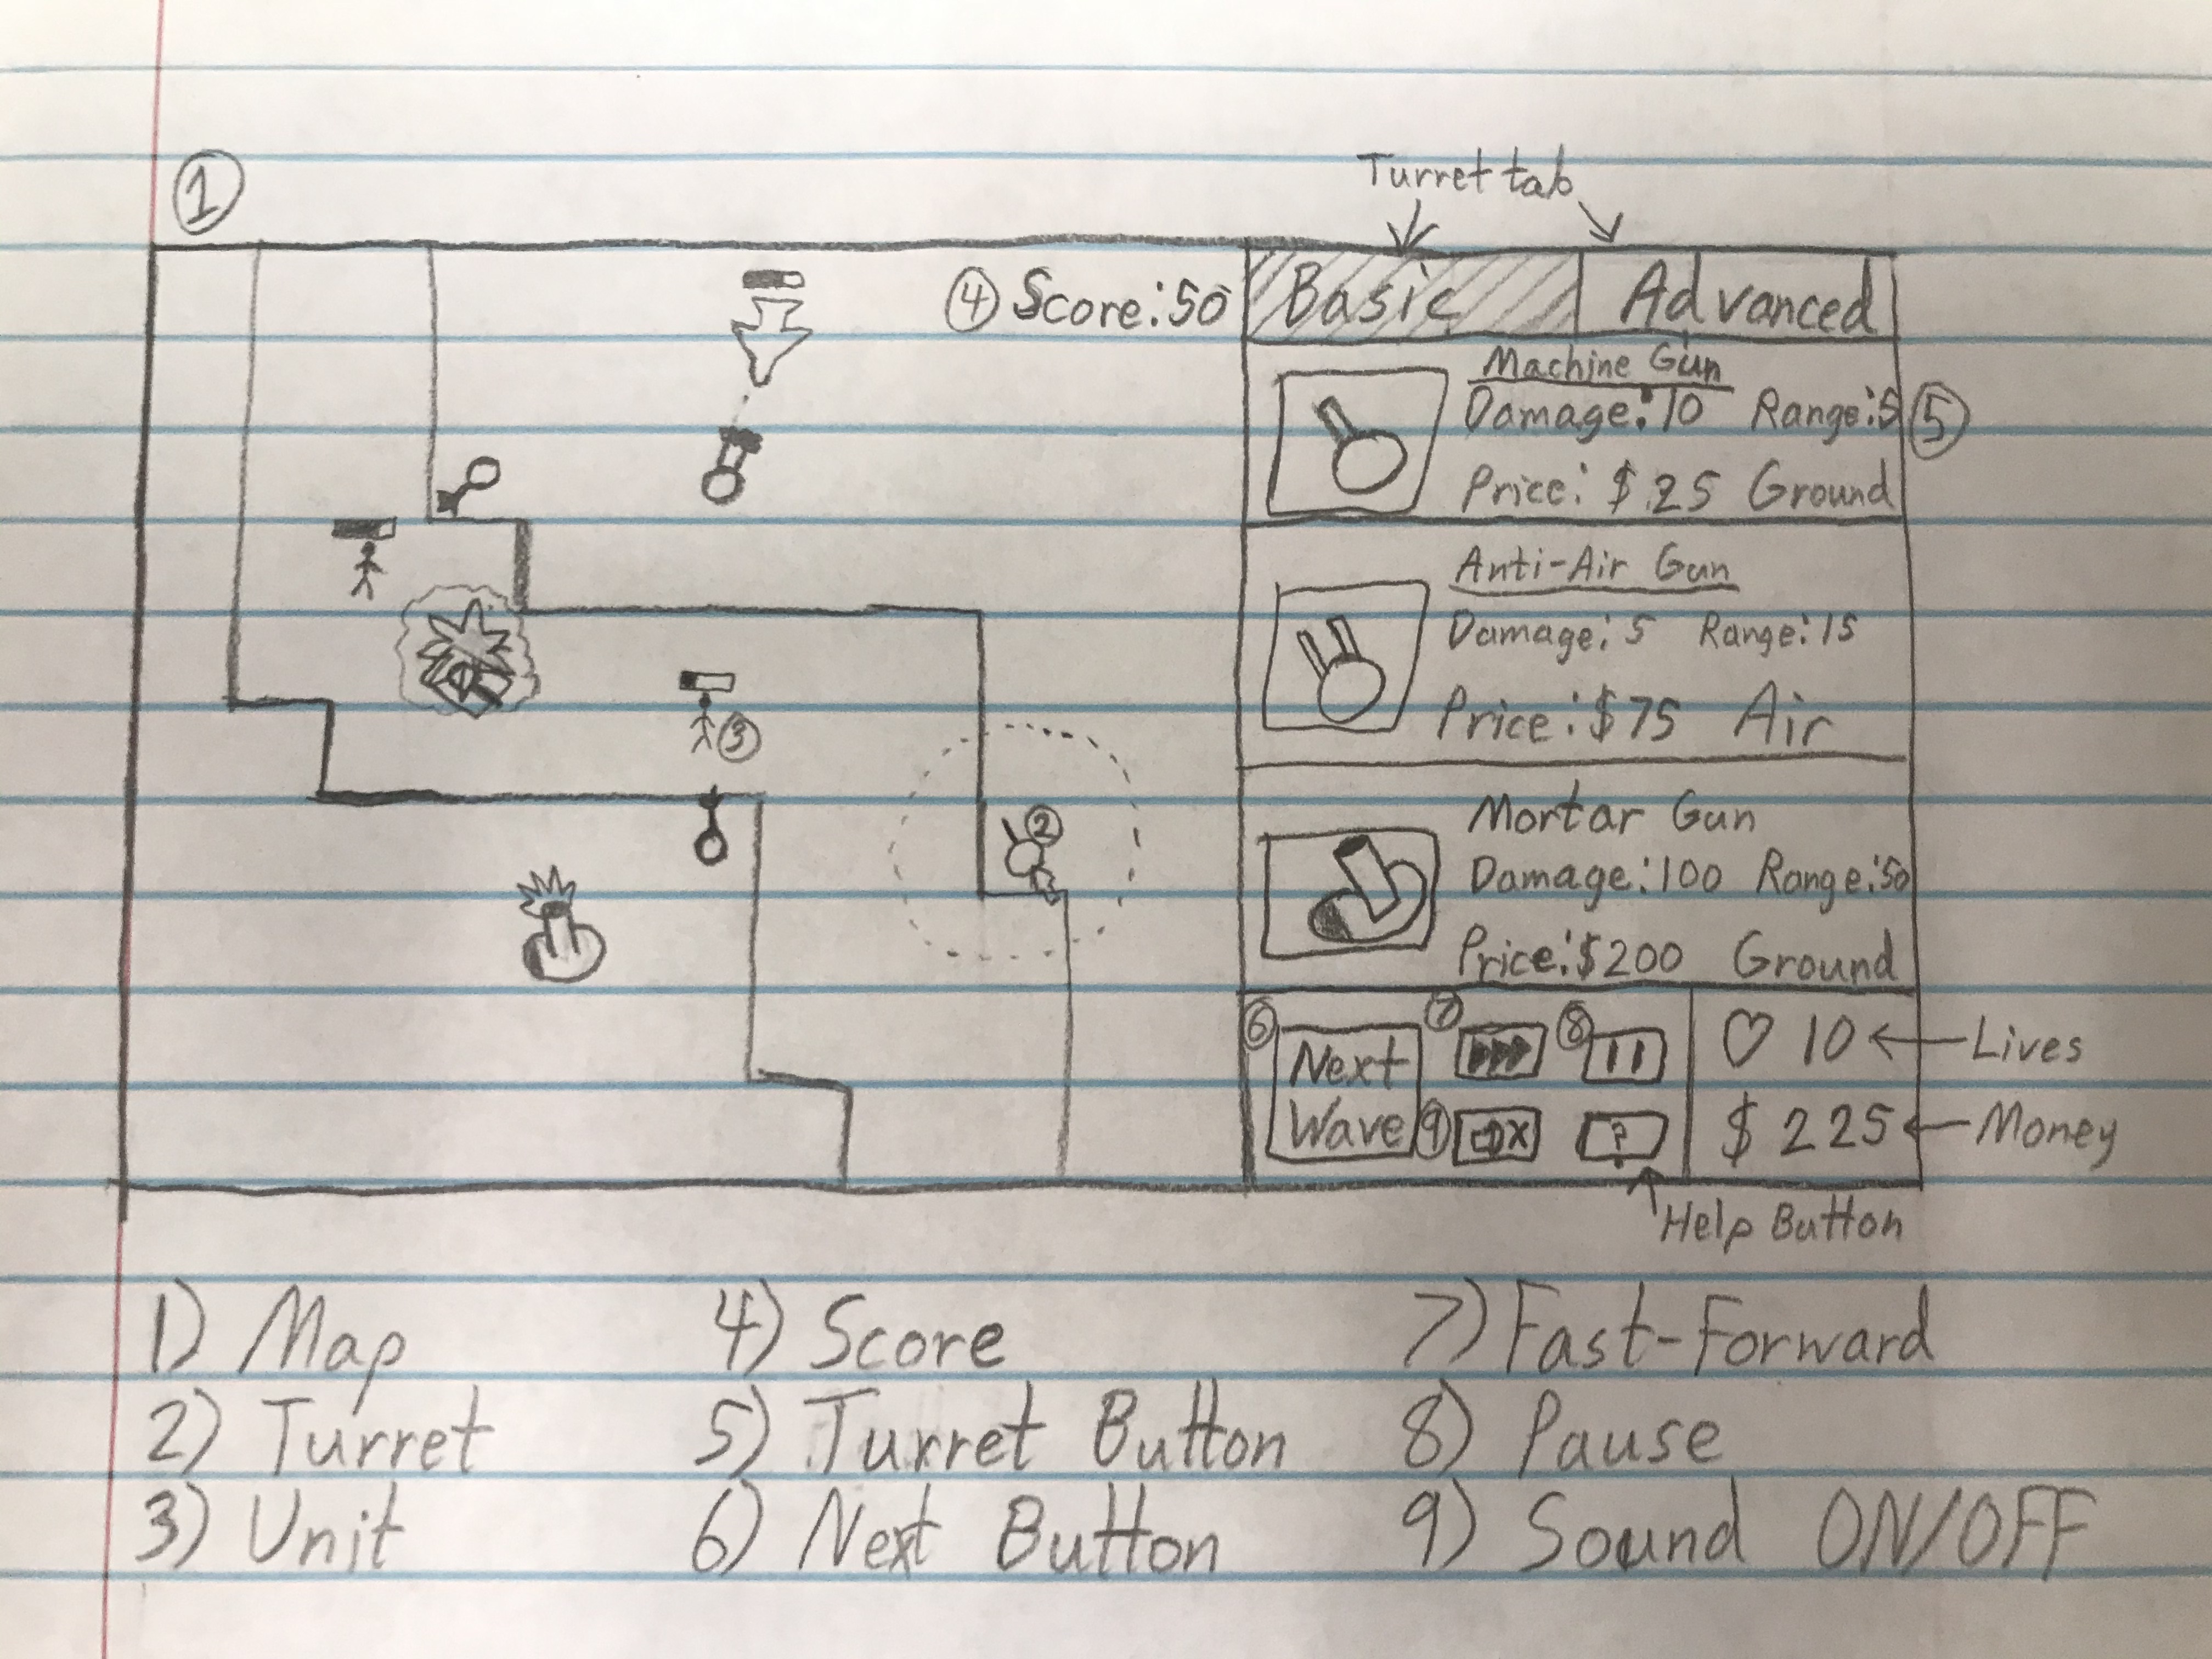 Turret tab
1
4 Score:50
Basic
Advanced
Machine Gun
Damage:10 Range:5
5
Price: $25 Ground
Anti-Air Gun
Damage:5 Range:15
Price:$75 Air
3
2
Mortar Gun
Damage:100 Range:50
Price:$200 Ground
6
Next
Wave
7
8
9
X
?
♡ 10
Lives
$ 225
Money
Help Button
1) Map
2) Turret
3) Unit
4) Score
5) Turret Button
6) Next Button
7) Fast-Forward
8) Pause
9) Sound ON/OFF